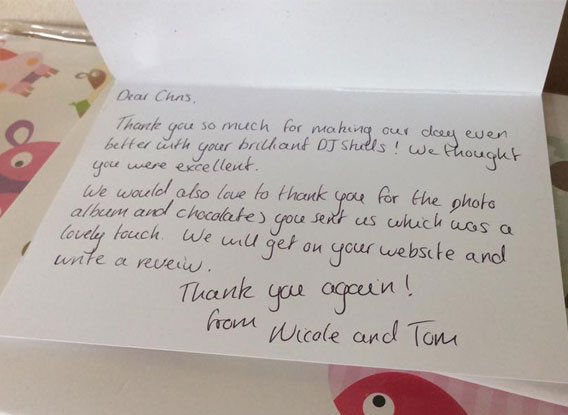 Dear Chris,
Thank you so much for making our day even
better with your brilliant DJ skills! We thought
you were excellent.
We would also love to thank you for the photo
album and chocolates you sent us which was a
lovely touch. We will get on your website and
write a reveiw.
Thank you again!
from Nicole and Tom